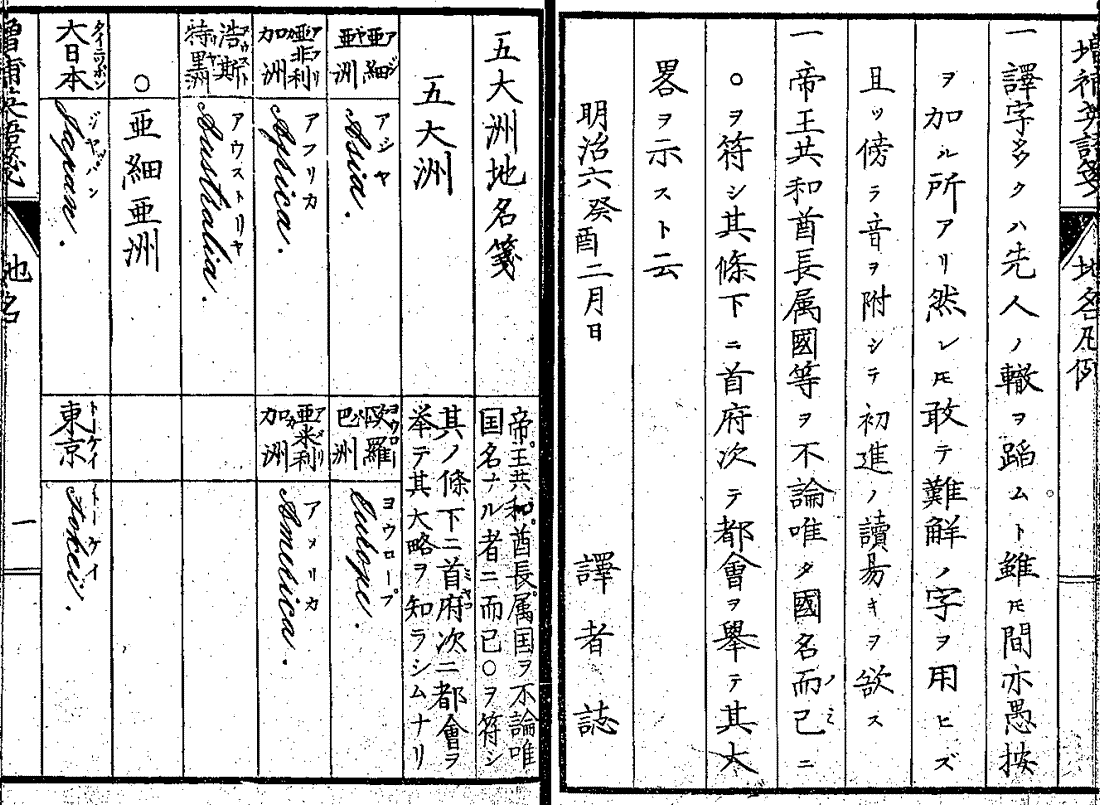 増補英語箋
地名凡例
一譯字多クハ先人ノ轍ヲ蹈ムト雖モ間亦愚按
ヲ加ル所アリ然レモ敢テ難解ノ字ヲ用ヒズ
且ッ傍ラ音ヲ附シテ初進ノ讀易キヲ欲ス
一帝王共和酋長属國等ヲ不論唯タ國名而已ニ
ノミ
○ヲ符シ其條下ニ首府次テ都會ヲ舉テ其大
畧ヲ示スト云
明治六癸酉二月日
譯者誌
五大洲地名箋
帝王共和酋長属国ヲ不論唯
国名ナル者ニ而已○ヲ符シ
其ノ條下ニ首府次ニ都會ヲ
ミヤコ
挙テ其大略ヲ知ラシムナリ
五大洲
亜細亜洲
アジヤ
アシヤ
Asia.
欧羅巴洲
ヨウロッパ
ヨウロープ
Europe.
亜非利加洲
アフリカ
アフリカ
Africa.
亜米利加洲
アメリカ
アメリカ
America.
浩斯特里洲
アウストリヤ
Australia.
○亜細亜洲
大日本
タイニッポン
ジヤッパン
Japan.
東京
トケイ
トーケイ
Tokei.
増補英語箋
地名
一